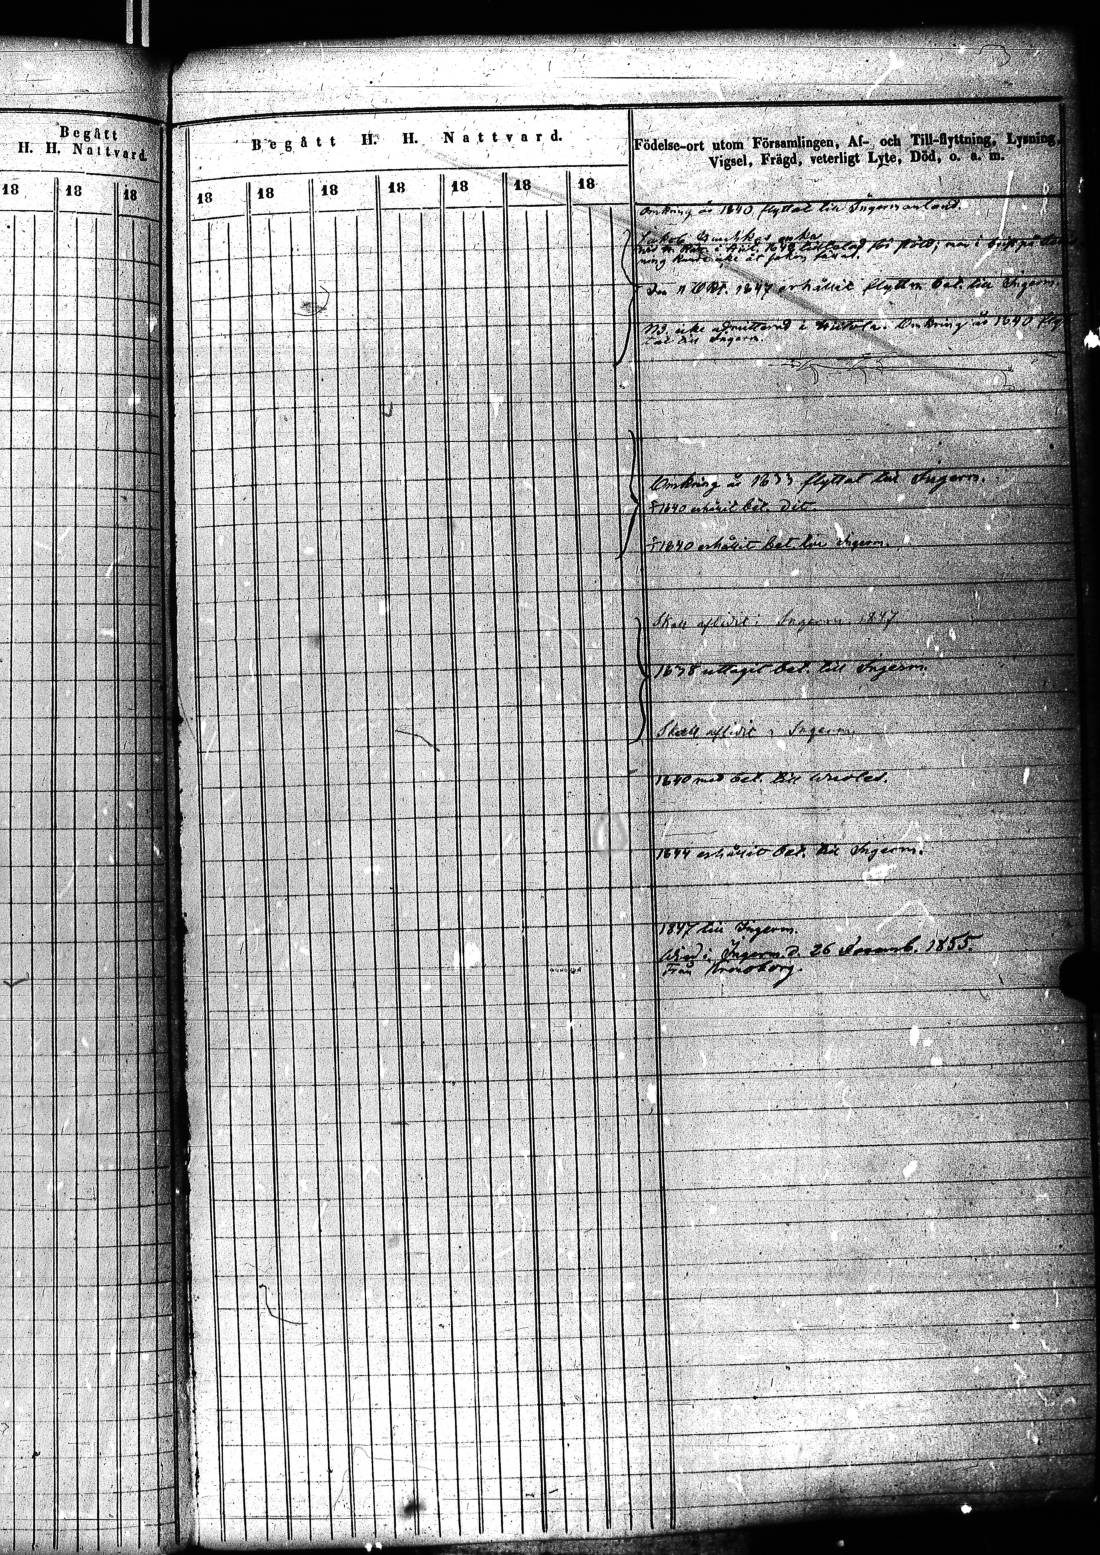 Begått
H. H. Nattvard
18 18 18
Begått H. H. Nattvard.
18 18 18 18 18 18 18
Födelse-ort utom Församlingen, Af- och Till-flyttning, Lysning,
Vigsel, Frägd, veterligt Lyte, Död, o. a. m.
Omkring år 1840 flyttat till Ingermanland.
enka
för stöld; men i brist på
ning kunde icke
Den 11 Okt. 1847 erhållit flyttn. bet. till Ingerm.
NB. icke admitterad i Omkring år 1840 flyt-
tat till Ingerm.
Omkring år 1833 flyttat till Ingerm.
1840 erhållit bet. dit.
1840 erhållit bet. till Ingerm.
Skall aflidit i Ingerm. 1847.
1838 uttagit bet. till Ingerm.
Skall aflidit i Ingerm.
1840 med bet. till
1844 erhållit bet. till Ingerm.
1847 till Ingerm.
i Ingerm. d. 26 Novemb. 1855.
från Kronoborg.